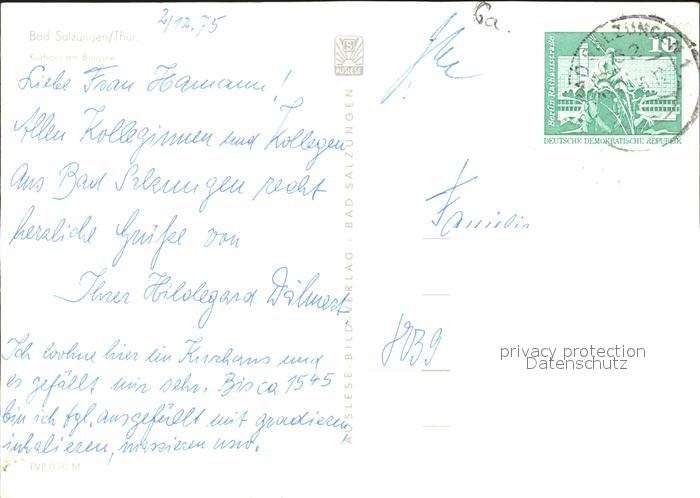 2/12.75
6a.
Bad Salzungen/Thür.
Kurhaus am Burgsee
AUSLESE
Liebe Frau Hamann!
Allen Kolleginnen und Kollegen
aus Bad Salzungen recht
herzliche Grüße von
Ihrer Hildegard
Ich wohne hier im Kurhaus und
es gefällt mir sehr. Bis ca 1545
bin ich tgl. ausgefüllt mit gradieren,
inhalieren, massieren usw.
EVP 0,20 M
AUSLESE-BILD-VERLAG · BAD SALZUNGEN
10
Berlin, Rathausstraße
DEUTSCHE DEMOKRATISCHE REPUBLIK
BAD SALZUNGEN 1
Familie
8039
privacy protection
Datenschutz